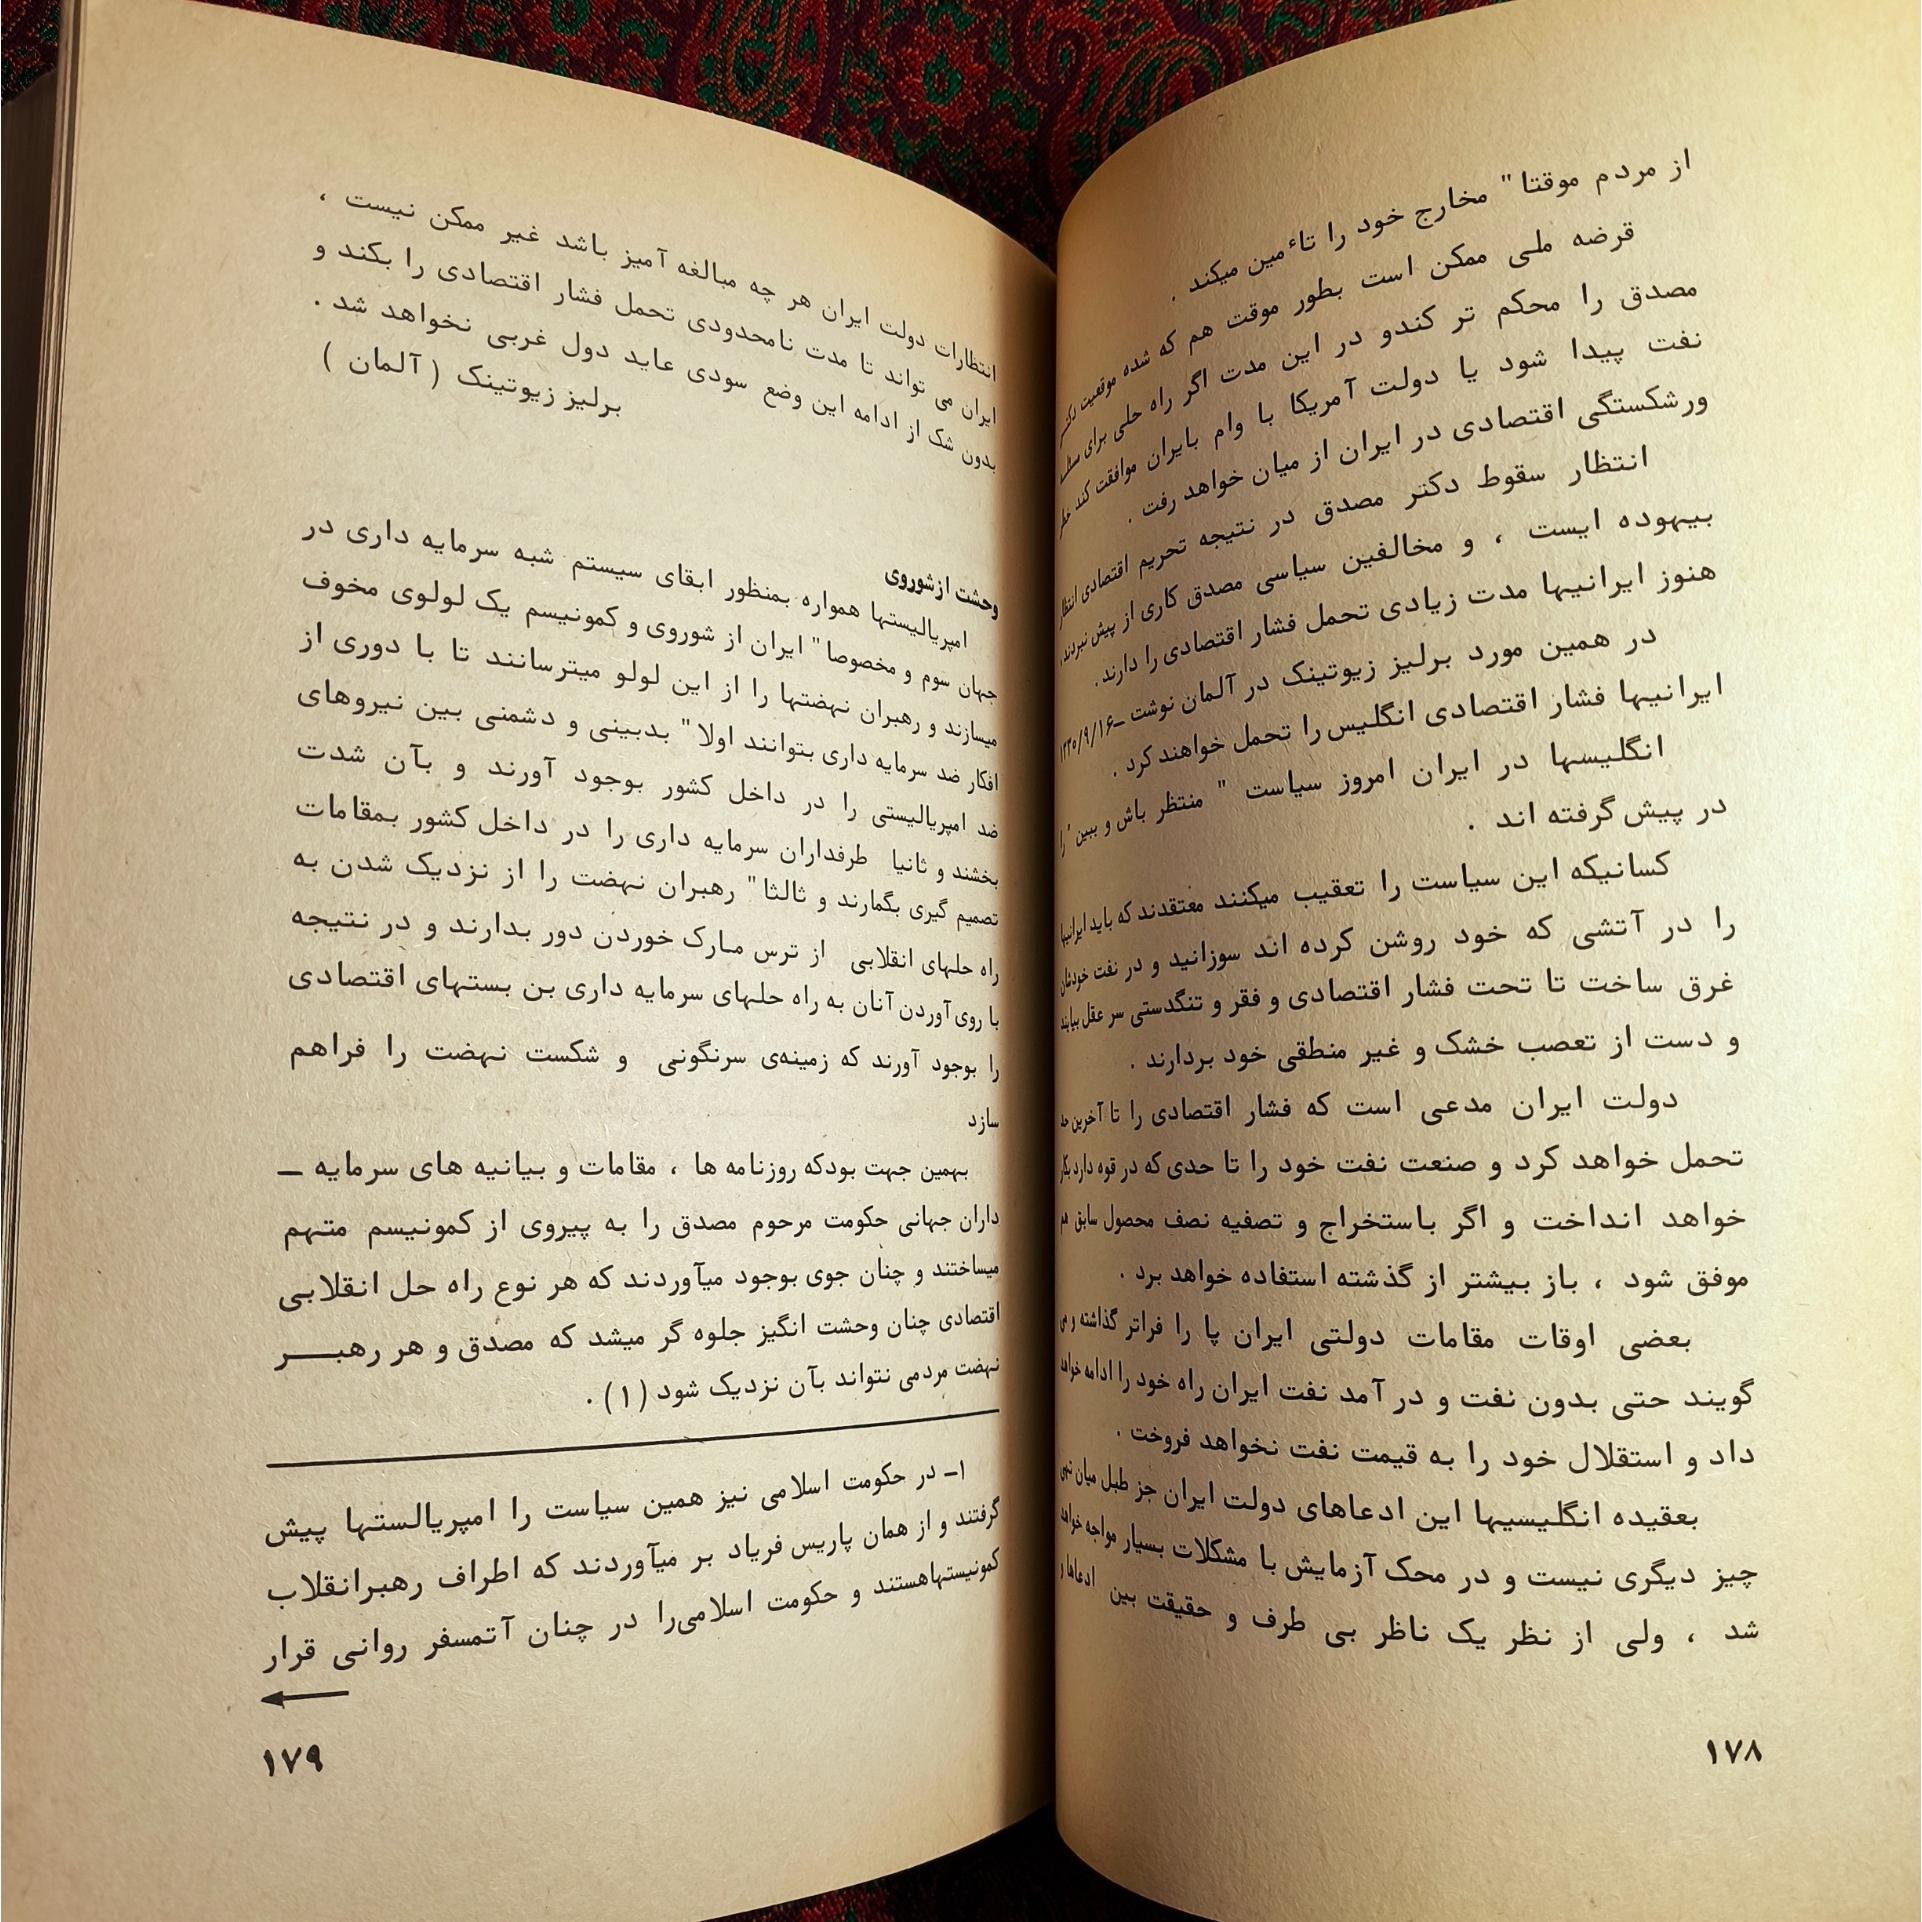 از مردم موقتا " مخارج خود را تاٴمین میکند .
قرضه ملی ممکن است بطور موقت هم که شده موقعیت دکتر
مصدق را محکم تر کندو در این مدت اگر راه حلی برای مسئله
نفت پیدا شود یا دولت آمریکا با وام بایران موافقت کند خطر
ورشکستگی اقتصادی در ایران از میان خواهد رفت .
انتظار سقوط دکتر مصدق در نتیجه تحریم اقتصادی انتظار
بیهوده ایست ، و مخالفین سیاسی مصدق کاری از پیش نبردند ،
هنوز ایرانیها مدت زیادی تحمل فشار اقتصادی را دارند.
در همین مورد برلیز زیوتینک در آلمان نوشت ـ۱۳۳۰/۹/۱۶
ایرانیها فشار اقتصادی انگلیس را تحمل خواهند کرد .
انگلیسها در ایران امروز سیاست " منتظر باش و ببین " را
در پیش گرفته اند .
کسانیکه این سیاست را تعقیب میکنند معتقدند که باید ایرانیها
را در آتشی که خود روشن کرده اند سوزانید و در نفت خودشان
غرق ساخت تا تحت فشار اقتصادی و فقر و تنگدستی سر عقل بیایند
و دست از تعصب خشک و غیر منطقی خود بردارند .
دولت ایران مدعی است که فشار اقتصادی را تا آخرین حد
تحمل خواهد کرد و صنعت نفت خود را تا حدی که در قوه دارد بکار
خواهد انداخت و اگر باستخراج و تصفیه نصف محصول سابق هم
موفق شود ، باز بیشتر از گذشته استفاده خواهد برد .
بعضی اوقات مقامات دولتی ایران پا را فراتر گذاشته و می
گویند حتی بدون نفت و در آمد نفت ایران راه خود را ادامه خواهد
داد و استقلال خود را به قیمت نفت نخواهد فروخت .
بعقیده انگلیسیها این ادعاهای دولت ایران جز طبل میان تهی
چیز دیگری نیست و در محک آزمایش با مشکلات بسیار مواجه خواهد
شد ، ولی از نظر یک ناظر بی طرف و حقیقت بین ادعاها و
۱۷۸
انتظارات دولت ایران هر چه مبالغه آمیز باشد غیر ممکن نیست ،
ایران می تواند تا مدت نامحدودی تحمل فشار اقتصادی را بکند و
بدون شک از ادامه این وضع سودی عاید دول غربی نخواهد شد .
برلیز زیوتینک ( آلمان )
وحشت ازشوروی
امپریالیستها همواره بمنظور ابقای سیستم شبه سرمایه داری در
جهان سوم و مخصوصا " ایران از شوروی و کمونیسم یک لولوی مخوف
میسازند و رهبران نهضتها را از این لولو میترسانند تا با دوری از
افکار ضد سرمایه داری بتوانند اولا " بدبینی و دشمنی بین نیروهای
ضد امپریالیستی را در داخل کشور بوجود آورند و بآن شدت
بخشند و ثانیا طرفداران سرمایه داری را در داخل کشور بمقامات
تصمیم گیری بگمارند و ثالثا " رهبران نهضت را از نزدیک شدن به
راه حلهای انقلابی از ترس مارک خوردن دور بدارند و در نتیجه
با روی آوردن آنان به راه حلهای سرمایه داری بن بستهای اقتصادی
را بوجود آورند که زمینه‌ی سرنگونی و شکست نهضت را فراهم
سازد
بهمین جهت بودکه روزنامه ها ، مقامات و بیانیه های سرمایه ـ
داران جهانی حکومت مرحوم مصدق را به پیروی از کمونیسم متهم
میساختند و چنان جوی بوجود میآوردند که هر نوع راه حل انقلابی
اقتصادی چنان وحشت انگیز جلوه گر میشد که مصدق و هر رهبـــر
نهضت مردمی نتواند بآن نزدیک شود (۱) .
۱ـ در حکومت اسلامی نیز همین سیاست را امپریالستها پیش
گرفتند و از همان پاریس فریاد بر میآوردند که اطراف رهبرانقلاب
کمونیستهاهستند و حکومت اسلامی‌را در چنان آتمسفر روانی قرار
۱۷۹